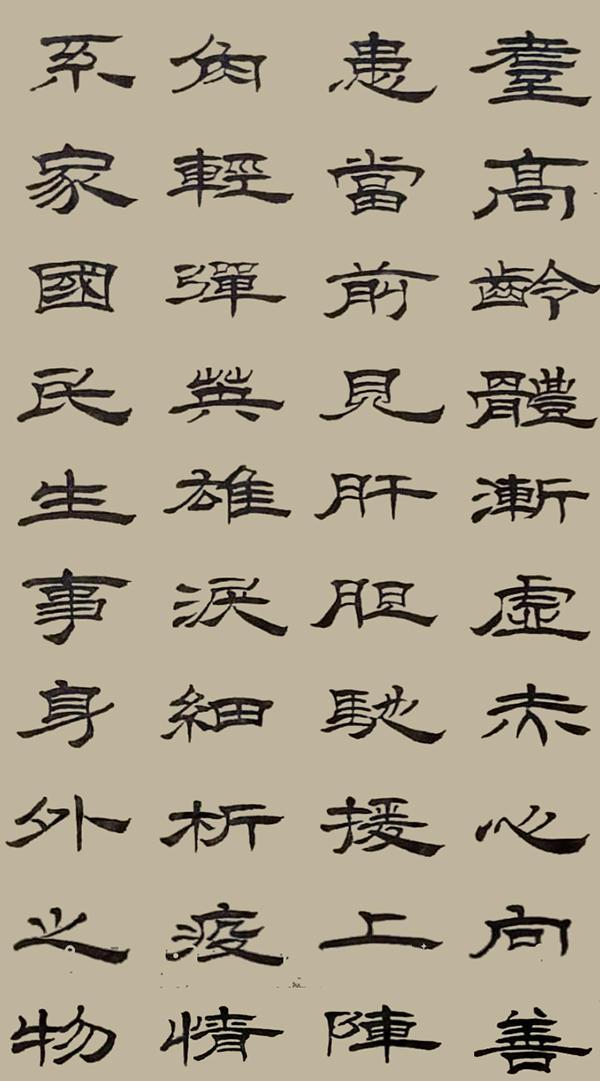 耋高齡體漸虛赤心向善
患當前見肝胆馳援上陣
角輕彈英雄淚細析疫情
系家國民生事身外之物